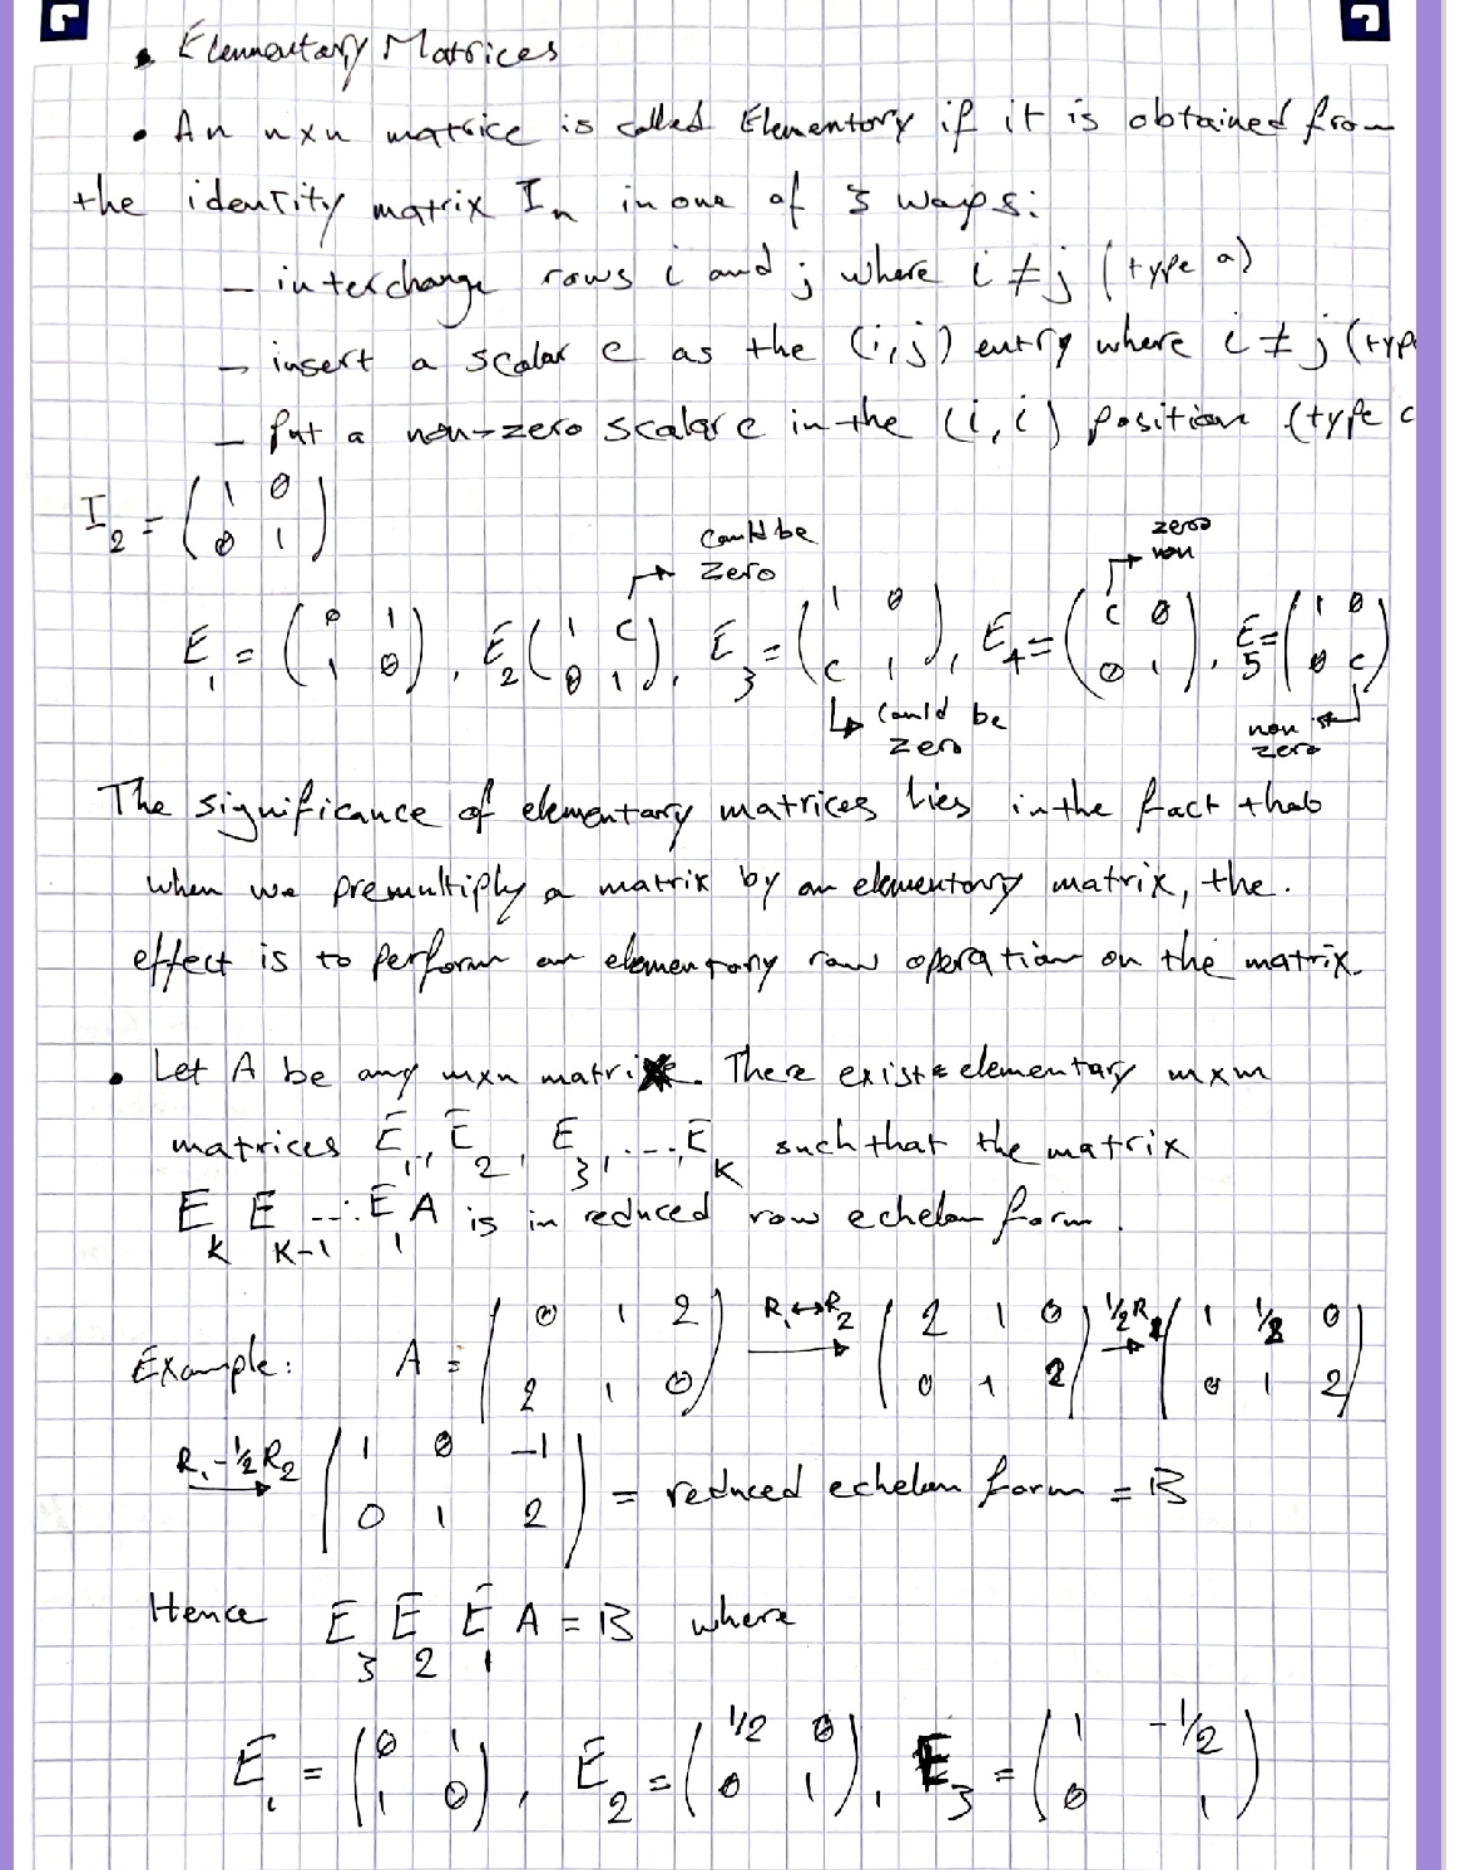 • Elementary Matrices
• An n×n matrice is called Elementary if it is obtained from
the identity matrix I_n in one of 3 ways:
– interchange rows i and j where i ≠ j (type a)
– insert a scalar c as the (i,j) entry where i ≠ j (typ
– Put a non-zero scalar c in the (i,i) position (type c
I_2 = (1 0; 0 1)
could be zero
zero non
E_1 = (0 1; 1 0), E_2 (1 c; 0 1), E_3 = (1 0; c 1), E_4 = (c 0; 0 1), E_5 = (1 0; 0 c)
↳ could be zero
non zero
The significance of elementary matrices lies in the fact that
when we premultiply a matrix by an elementary matrix, the.
effect is to perform an elementary row operation on the matrix.
• Let A be any m×n matrix. There exists elementary m×m
matrices E_1, E_2, E_3, ..., E_K such that the matrix
E_K E_K-1 ... E_1 A is in reduced row echelon form.
Example: A = (0 1 2; 2 1 0) R_1↔R_2 → (2 1 0; 0 1 2) 1/2R_1 → (1 1/2 0; 0 1 2)
R_1-1/2R_2 → (1 0 -1; 0 1 2) = reduced echelon form = B
Hence E_3 E_2 E_1 A = B where
E_1 = (0 1; 1 0), E_2 = (1/2 0; 0 1), E_3 = (1 -1/2; 0 1)